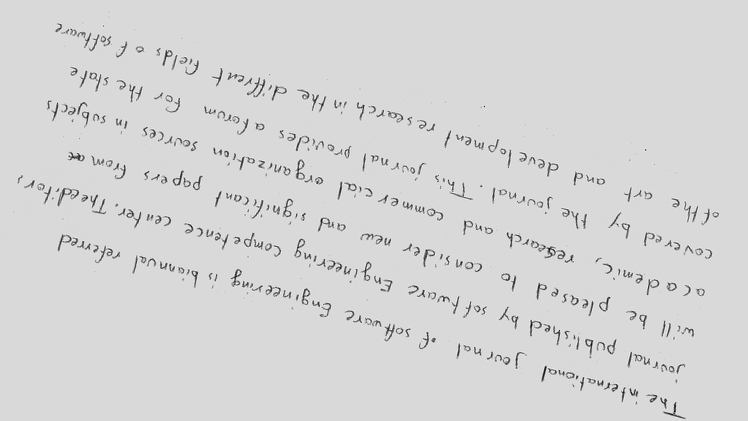 The international journal of software Engineering is biannual referred
journal published by software Engineering Competence center. The editor,
will be pleased to consider new and significant papers from
academic, research and commercial organization sources in subjects
covered by the journal. This journal provides a forum for the state
of the art and development research in the diffrent fields of software